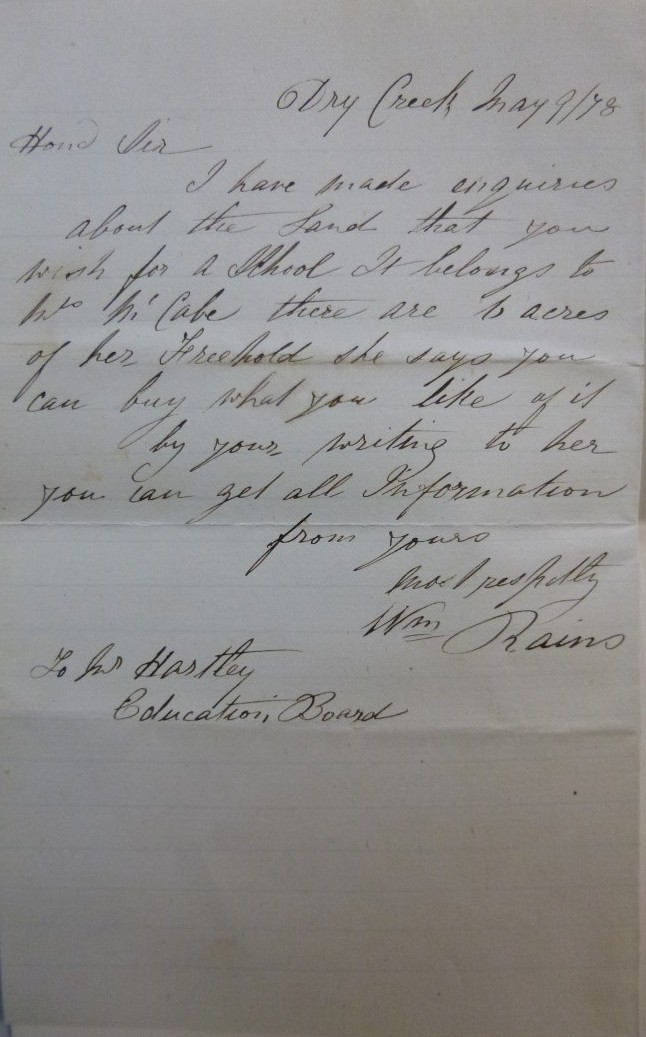 Dry Creek May 9/78
Hond Sir
I have made enquiries
about the Land that you
wish for a School It belongs to
Mrs McCabe there are 6 acres
of her Freehold she says you
can buy what you like of it
by your writing to her
you can get all Information
from yours
most respctly
Wm Rains
To Mr Hartley
Education Board